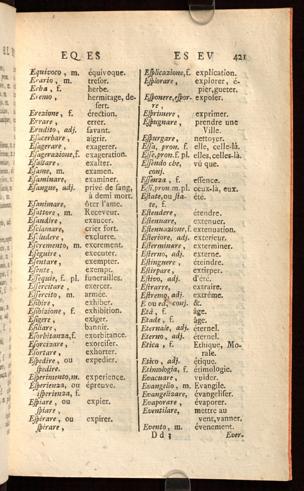 EQ ES
ES EV 421
Equivoco, m. équivoque.
Erario, m. tresor.
Erba, f. herbe.
Eremo, hermitage, de-
sert.
Erezione, f. érection.
Errare, errer.
Erudito, adj. savant.
Esacerbare, aigrir.
Esagerare, exagerer.
Esagerazione, f. exageration.
Esaltare, exalter.
Esame, m. examen.
Esaminare, examiner.
Esangue, adj. privé de sang,
à demi mort.
Esanimare, ôter l'ame.
Esattore, m. Receveur.
Esaudire, exaucer.
Esclamare, crier fort.
Escludere, exclurre.
Escremento, m. excrement.
Eseguire, executer.
Esentare, exempter.
Esente, exempt.
Esequie, f. pl. funerailles.
Esercitare, exercer.
Esercito, m. armée.
Esibire, exhiber.
Esibizione, f. exhibition.
Esigere, exiger.
Esiliare, bannir.
Esorbitanza, f. exorbitance.
Esorcizare, exorciser.
Esortare, exhorter.
Espedire, ou expedier.
spedire.
Esperimento, m. experience.
Esperienza, ou épreuve.
isperienza, f.
Espiare, ou expier.
spiare,
Espirare, ou expirer.
spirare,
Esplicazione, f. explication.
Esplorare, explorer, é-
pier, guetter.
Esponere, espor- exposer.
re,
Esprimere, exprimer.
Espugnare, prendre une
Ville.
Espurgare, nettoyer.
Essa, pron. f. elle, celle-là.
Esse, pron. f. pl. elles, celles-là.
Essendo che, vû que.
conj.
Essenza, f. essence.
Essi, pron. m. pl. ceux-là, eux.
Estate, ou sta- été.
te, f.
Estendere, étendre.
Estenuare, extenuer.
Estenuazione, f. extenuation.
Esteriore, adj. exterieur.
Esterminare, exterminer.
Esterno, adj. externe.
Estinguere, éteindre.
Estirpare, extirper.
Estivo, adj. d'été.
Estrarre, extraire.
Estremo, adj. extrême.
E ou ed, conj. &.
Età, f. âge.
Etade, f. âge.
Eternale, adj. éternel.
Eterno, adj. éternel.
Etica, f. Ethique, Mo-
rale.
Etico, adj. étique.
Etimologia, f. étimologie.
Evacuare, vuider.
Evangelio, m. Evangile.
Evangelizare, évangeliser.
Evaporare, évaporer.
Eventilare, mettre au
vent, vanner.
Evento, m. évenement.
D d 3 Ever.